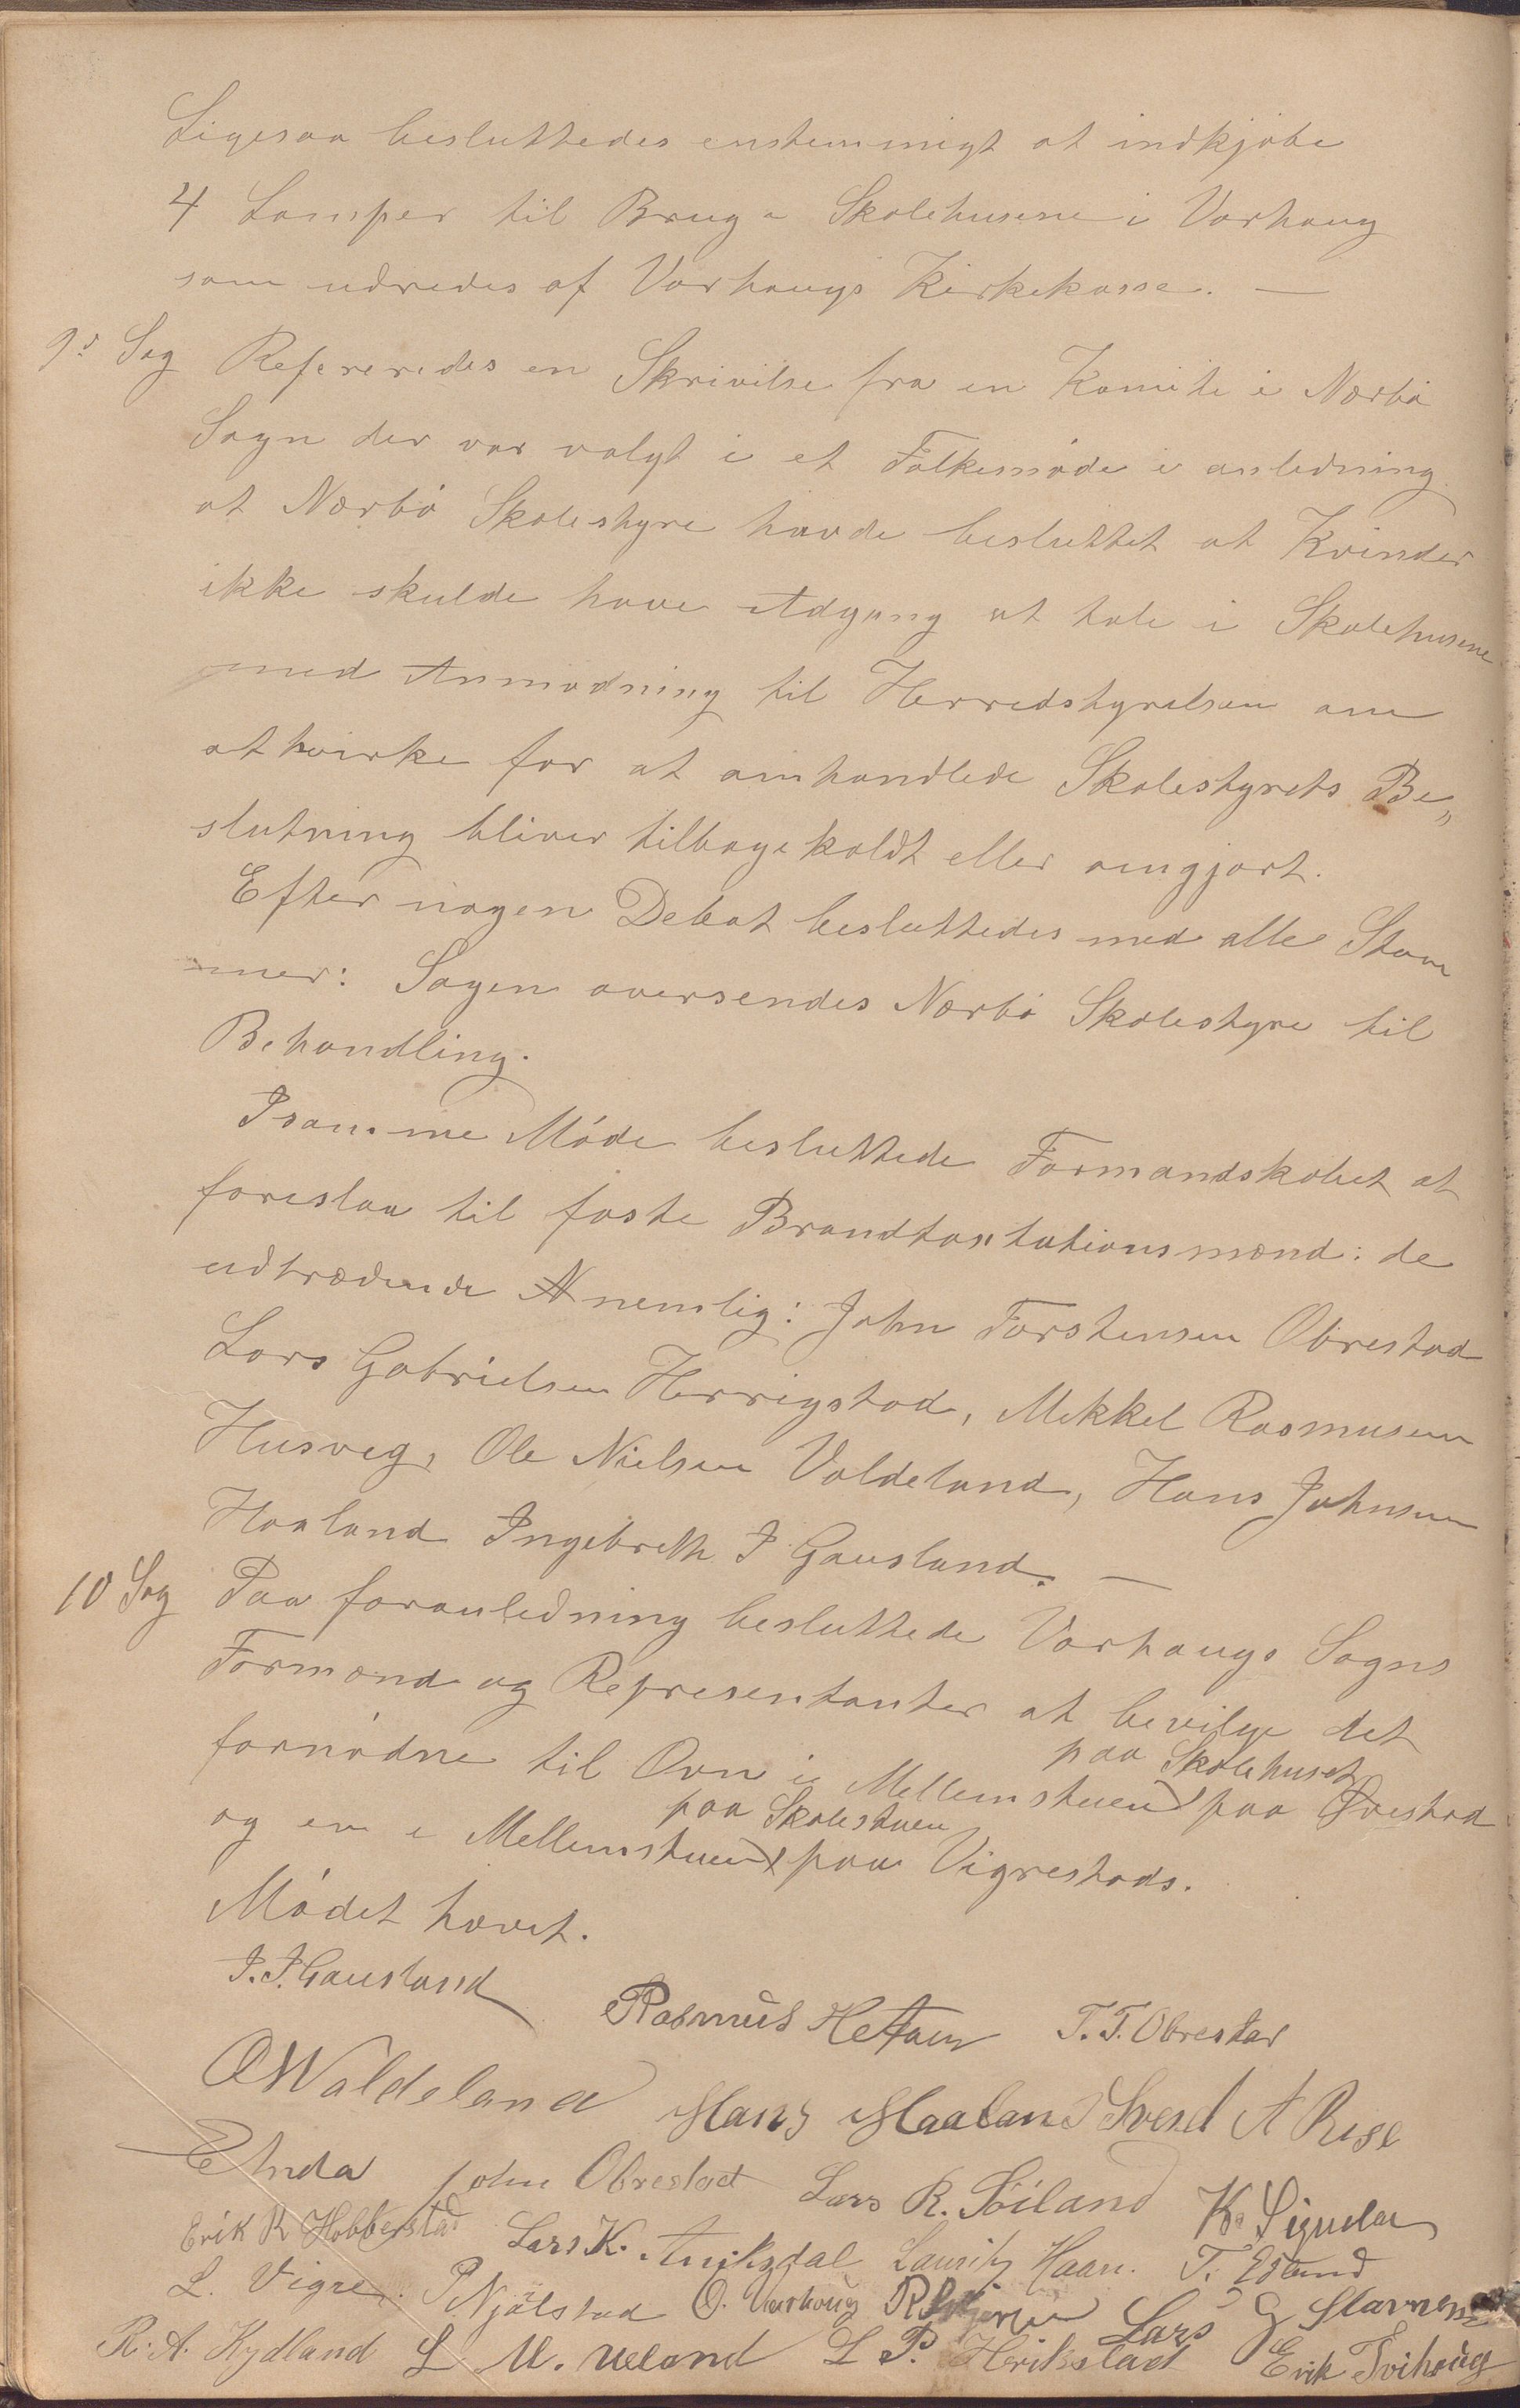 Ligesaa besluttedes enstemmigt at indkjøbe
4 Lamper til Brug i Skolehusene i Varhaug
som udredes af Varhaugs Kirkekasse. —
9de Sag Refereredes en Skrivilse fra en Komite i Nærbø
Sogn der var valgt i et Folkemøde i anledning
at Nærbø Skolestyre havde besluttet at Kvinder
ikke skulde have Adgang at tale i Skolehusene
med Anmodning til Herredstyrelsen om
at virke for at omhandlede Skolestyrets Be„
slutning bliver tilbagekaldt eller omgjort.
Efter nogen Debat besluttedes med alle Stem
mer: Sagen oversendes Nærbø Skolestyre til
Behandling.
I samme Møde besluttede Formandskabet at
foreslaa til faste Brandtaxtationsmænd: de
udtrædende nemlig: John Torstensen Obrestad
Lars Gabrielsen Herrigstad, Mikkel Rasmusen
Husveg, Ole Nielsen Valdeland, Hans Johnsen
Haaland Ingebreth I Gausland. —
10 Sag Paa foranledning besluttede Varhaugs Sogns
Formænd og Representanter at bevilge det
fornødne til Ovn i Mellemstuen paa Skolehuset paa Ovestad
og en i Mellemstuen paa Skolestuen paa Vigrestads.
Mødet hævet.
I. I. Gausland Rasmus Hetæen T. T. Obrestad
O N Valdeland Hans Haaland Svend A Rise
E Anda John Obrestad Lars R. Söiland K. Sigvelan
Erik R Hobberstad Lars K. Aniksdal Lauritz Haar. T. Edland
L. Vigre. P Njålstad O. Varhoug Lars G Stavnem
R. A. Kydland L. M. Ueland L P. Herikstad Erik Tvihoug